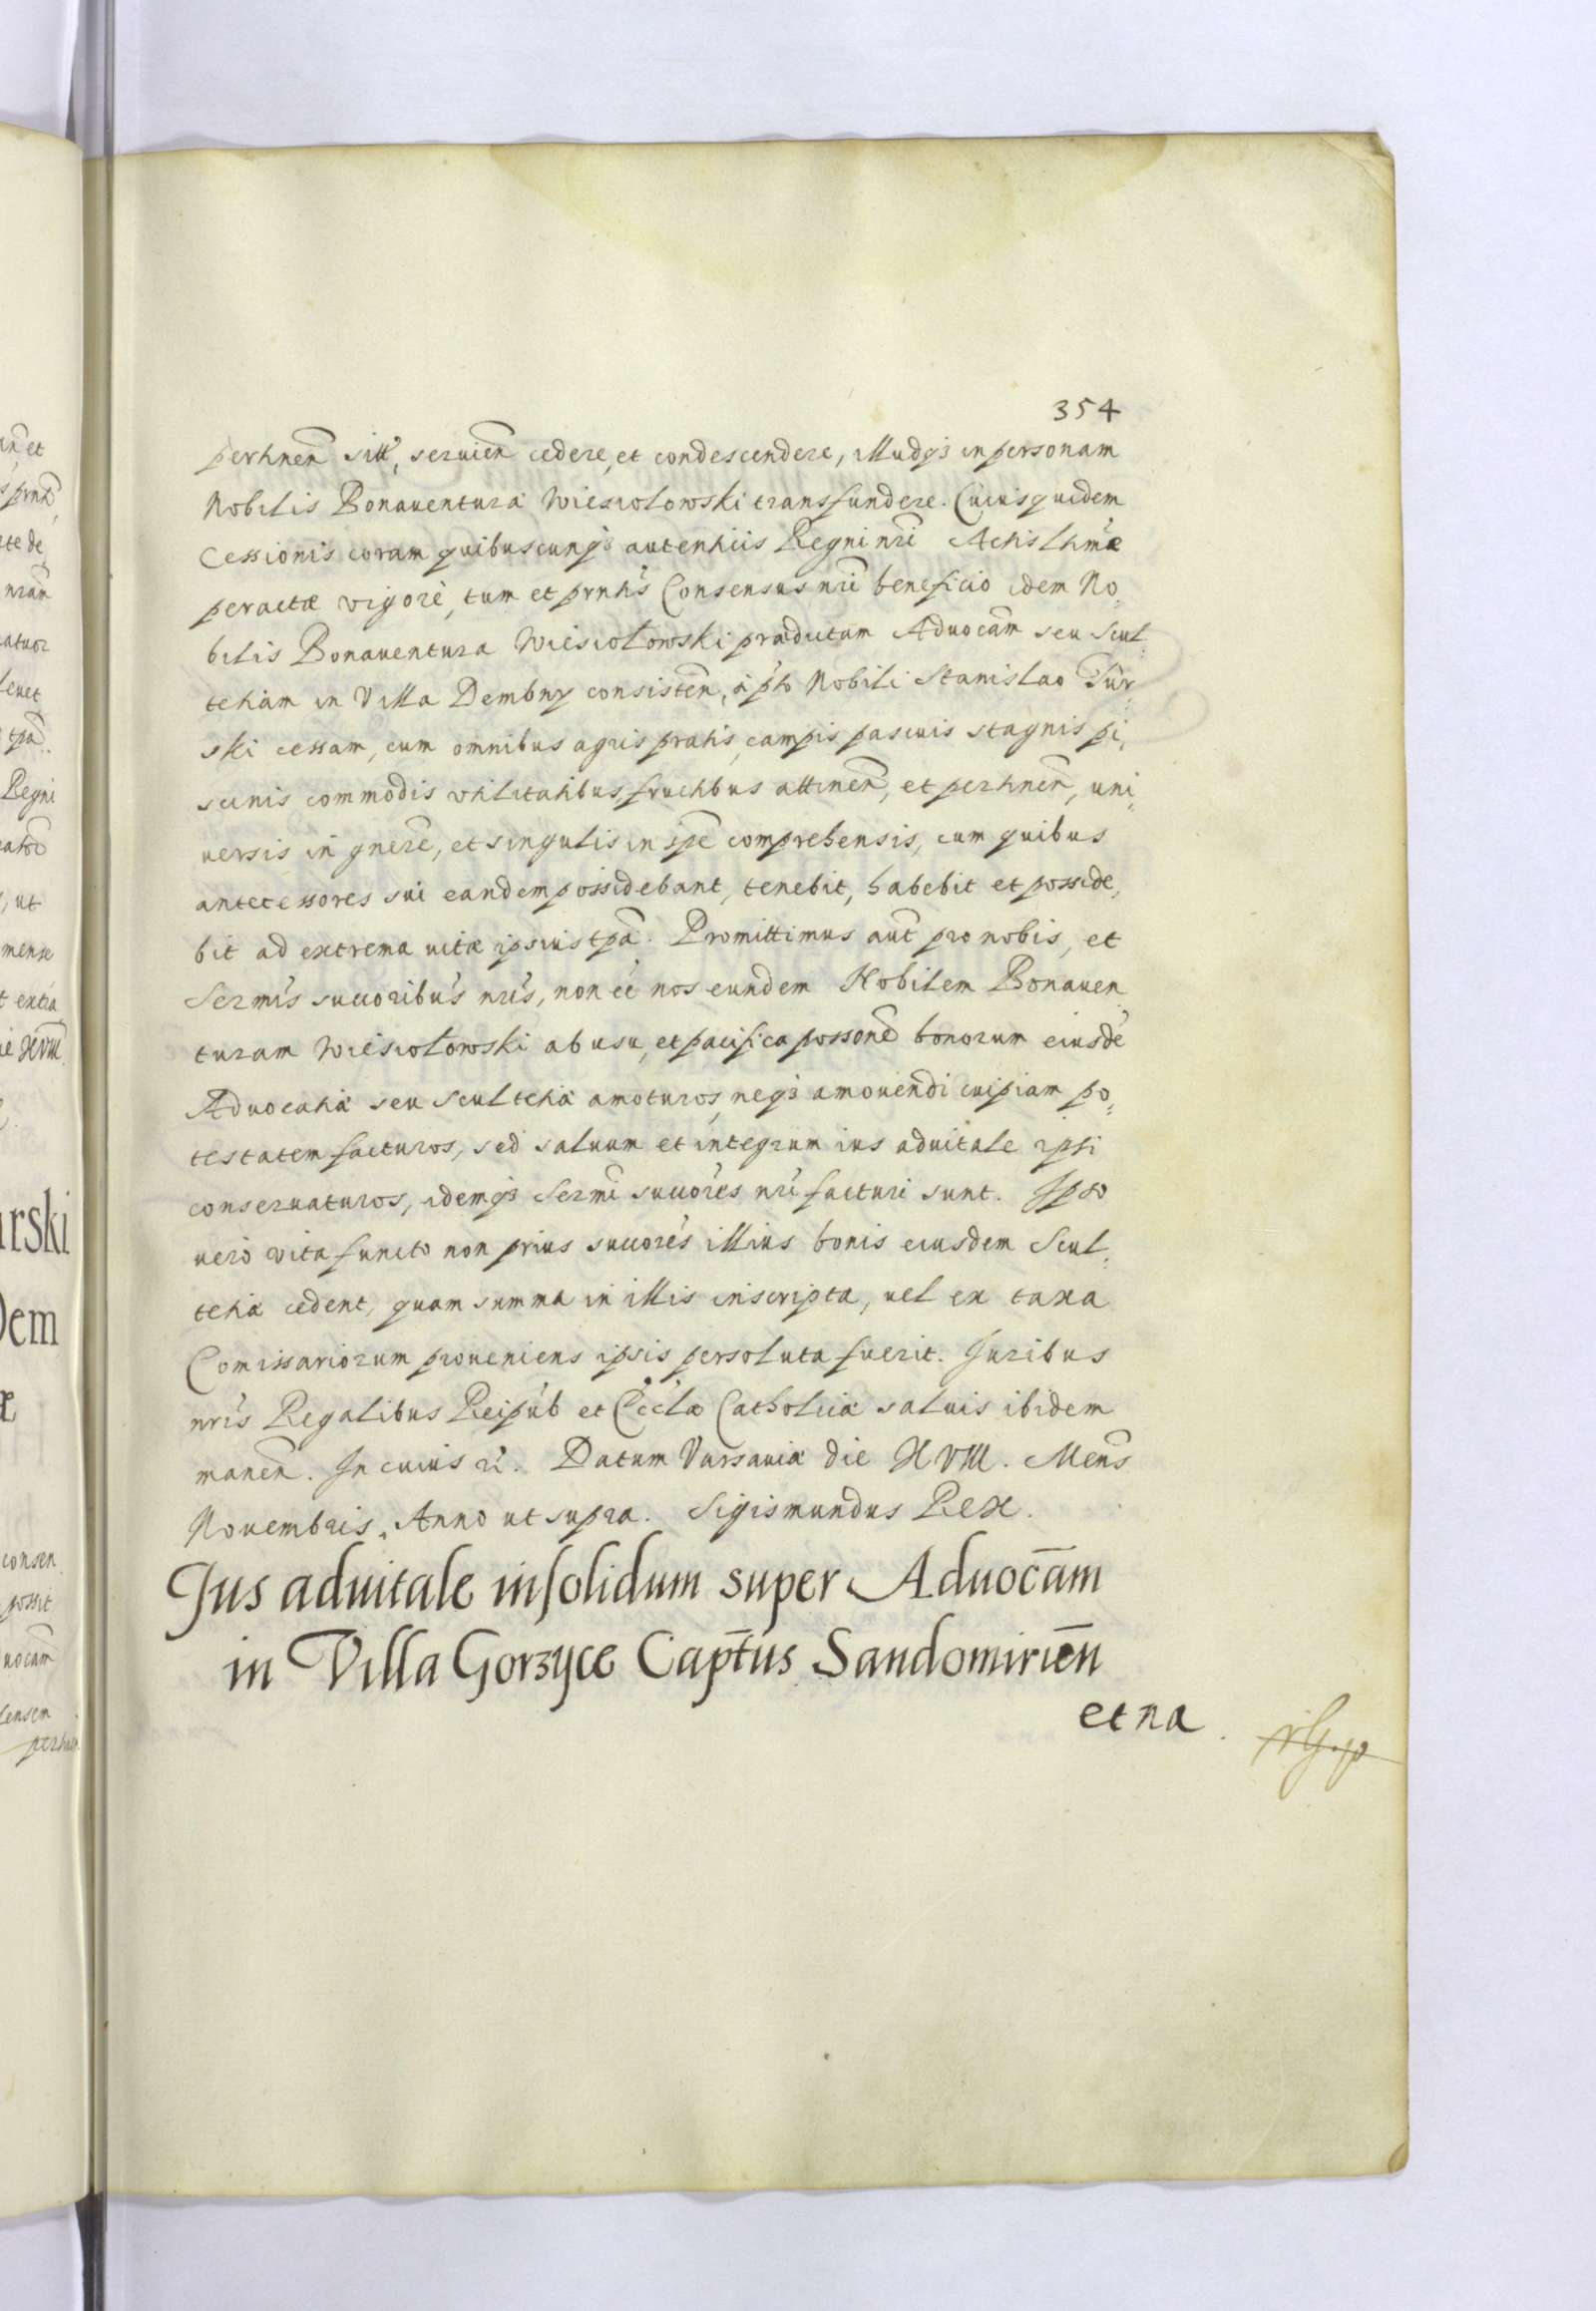 354
pertinen̄ sitt, seruien̄ cedere, et condescendere, illudq3 in personam
Nobilis Bonauenturæ Wiesiolowski transfundere. Cuiusquidem
Cessionis coram quibuscunq3 autenticis Regni nr̄i Actis ltimæ
peractæ vigore, tum et prntis Consensus nr̄i beneficio idem No„
bilis Bonauentura Wiesiołowski prædictam Aduocam̄ seu Scul„
tetiam in Villa Dembny consisten̄, à pto Nobili Stanislao Tur„
ski cessam, cum omnibus agris pratis, campis pascuis stagnis pi„
scinis commodis vtilitatibus fructibus attinen̄, et pertinen̄, uni„
uersis in gnere, et singulis in spe comprehensis, cum quibus
antecessores sui eandem possidebant, tenebit, habebit et posside„
bit ad extrema uitæ ipsius tpa. Promittimus aut̄ pro nobis, et
Sermis succoribus nr̄is, non eē nos eundem Nobilem Bonauen„
turam Wiesiołowski ab usu, et pacifica possone bonorum eiusdē
Aduocatiæ seu Scultetiæ amoturos, neq3 amouendi cuipiam po„
testatem facturos, sed saluum et integrum ius aduitale ipsi
conseruaturos, idemq3 Sermi succores nr̄i facturi sunt. Ipso
uerò vita functo non prius succores illius bonis eiusdem Scul„
tetiæ cedent, quam summa in illis inscripta, uel ex taxa
Comissariorum proueniens ipsis persoluta fuerit. Juribus
nr̄is Regalibus Reipub et Ecclæ Catholicæ saluis ibidem
manen̄. In cuius ri. Datum Varsauiæ die XVIII. Mens̄
Nouembris, Anno ut supra. Sigismundus Rex.
Jus aduitale insolidum super Aduocām
in Villa Gorzyce Cap̄tus Sandomirien̄
et na.